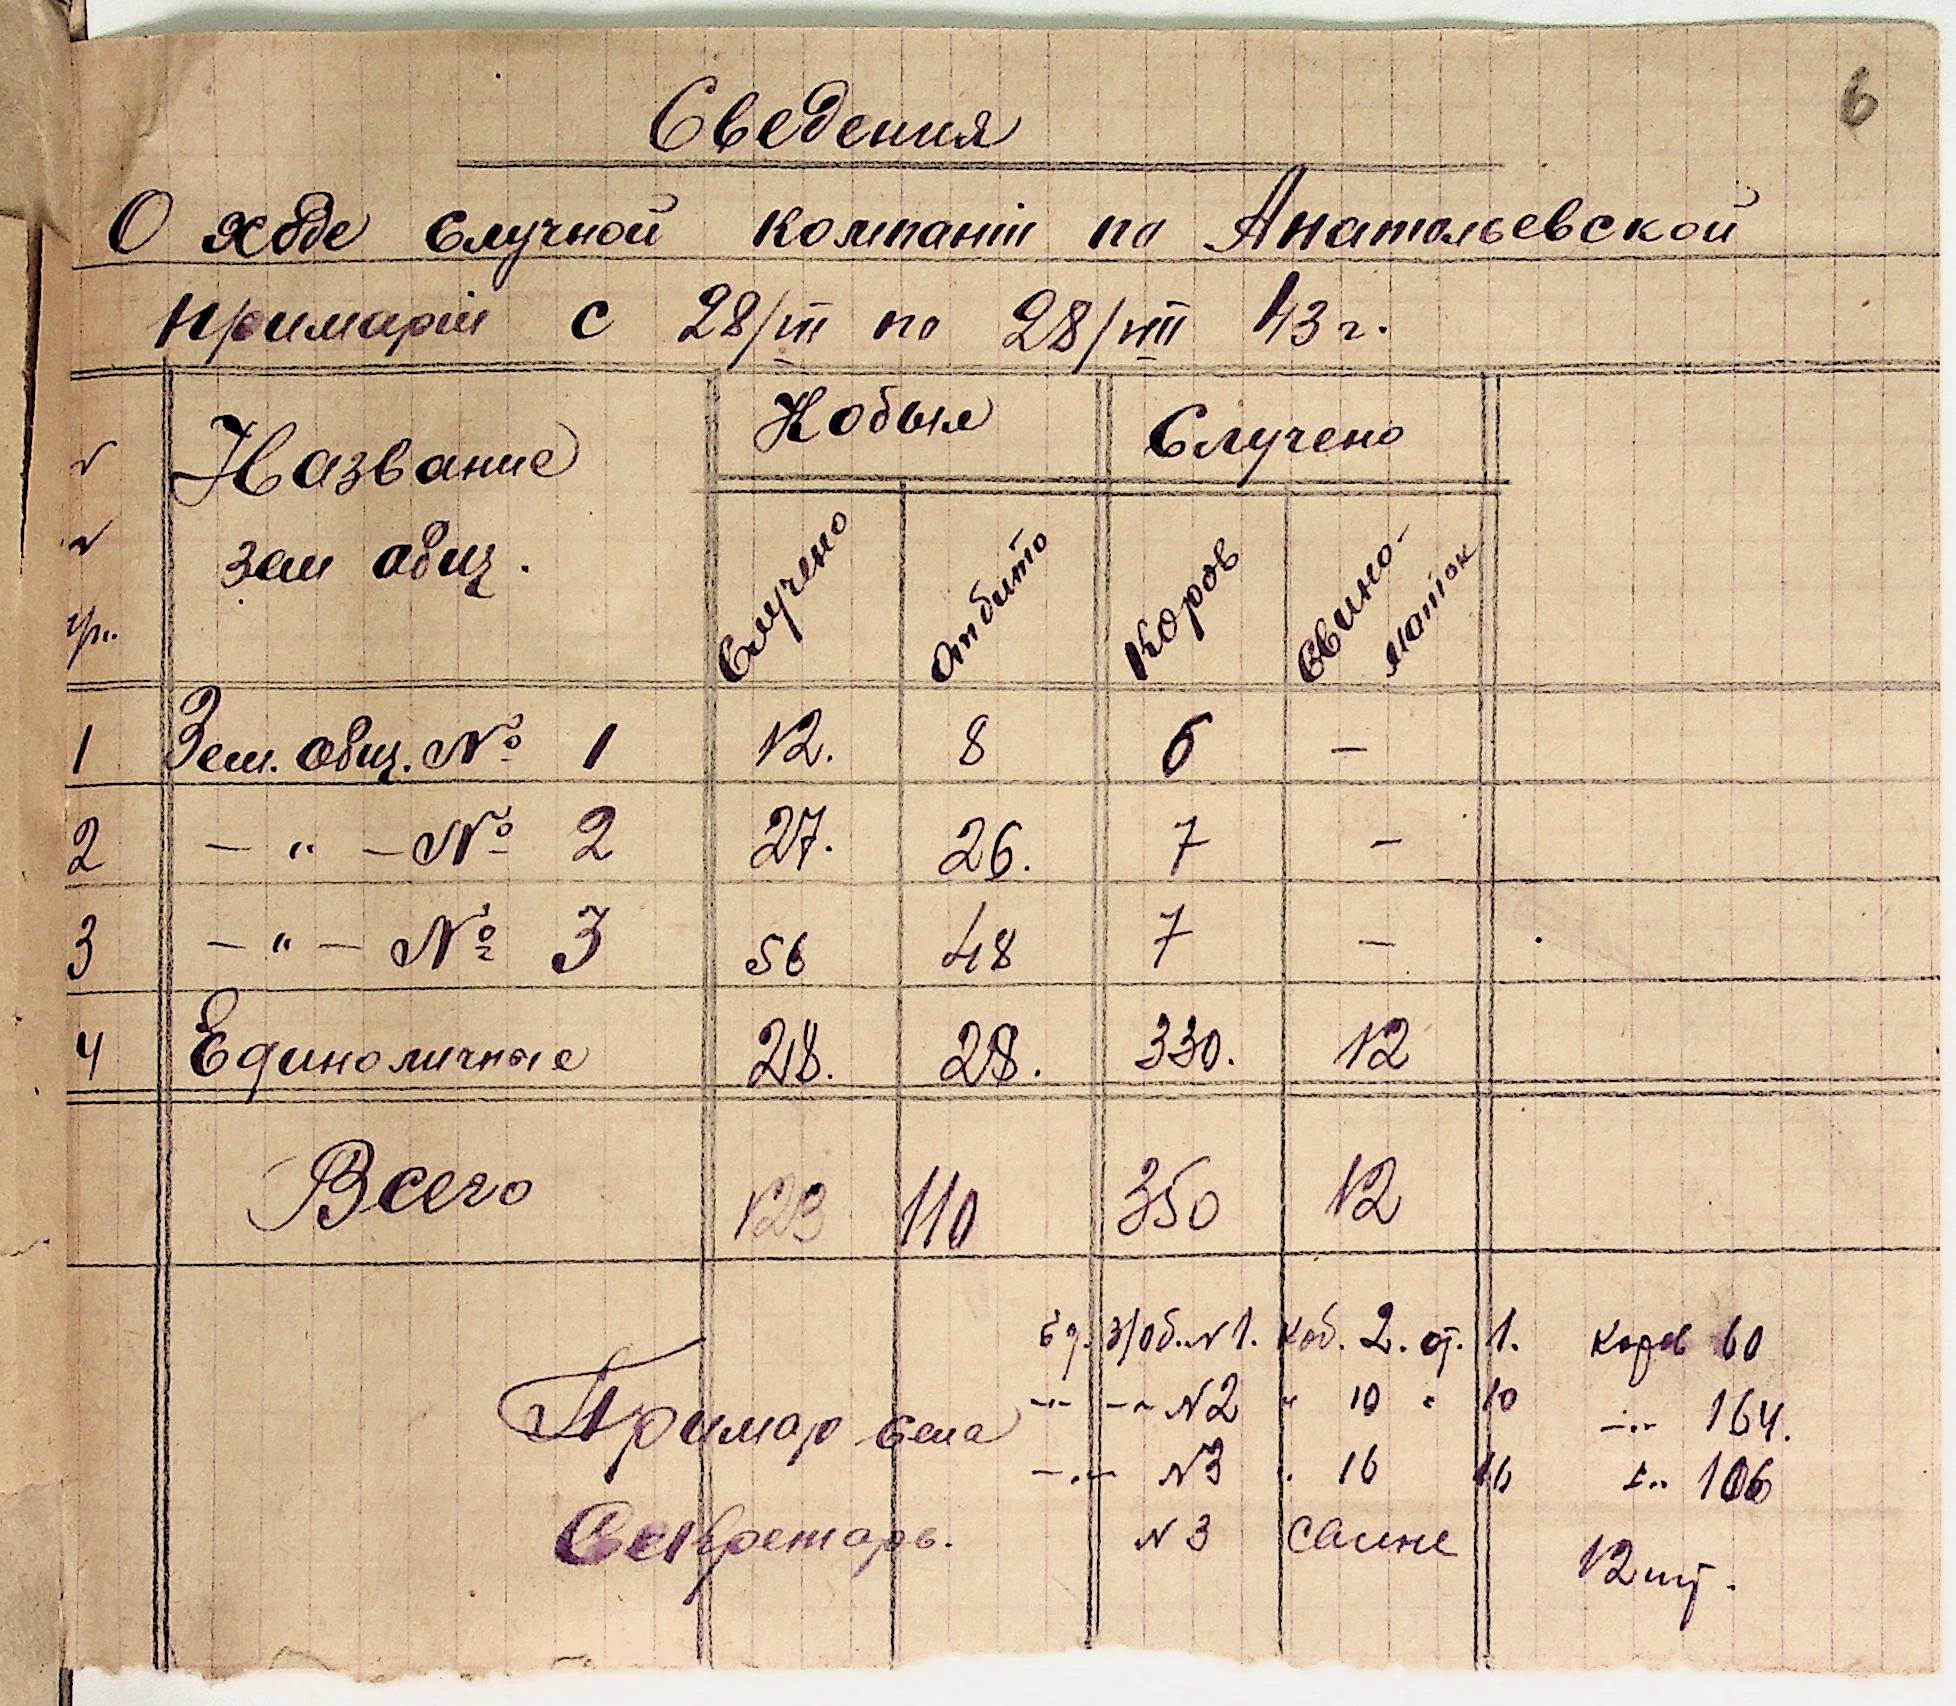 6
Сведения
О ходе случной компаніи по Анатольевской
примаріи с 28/III по 28/VIII 43 г.
№ № пр. Название зем общ. Кобыл Случено
Случено Отбито Коров Свино-маток
1 Зем. общ. № 1 12. 8 6 —
2 — " — № 2 27. 26. 7 —
3 — " — № 3 56 48 7 —
4 Единоличные 28. 28. 330. 12
Всего 123 110 350 12
Ед. з/об. N 1. Коб. 2. от. 1. Коров 60
-"- -"- N 2 " 10 " 10 -"- 164.
-"- N 3 " 16 16 -"- 106
N 3 Свине 12 шт.
Примар села
Секретарь.